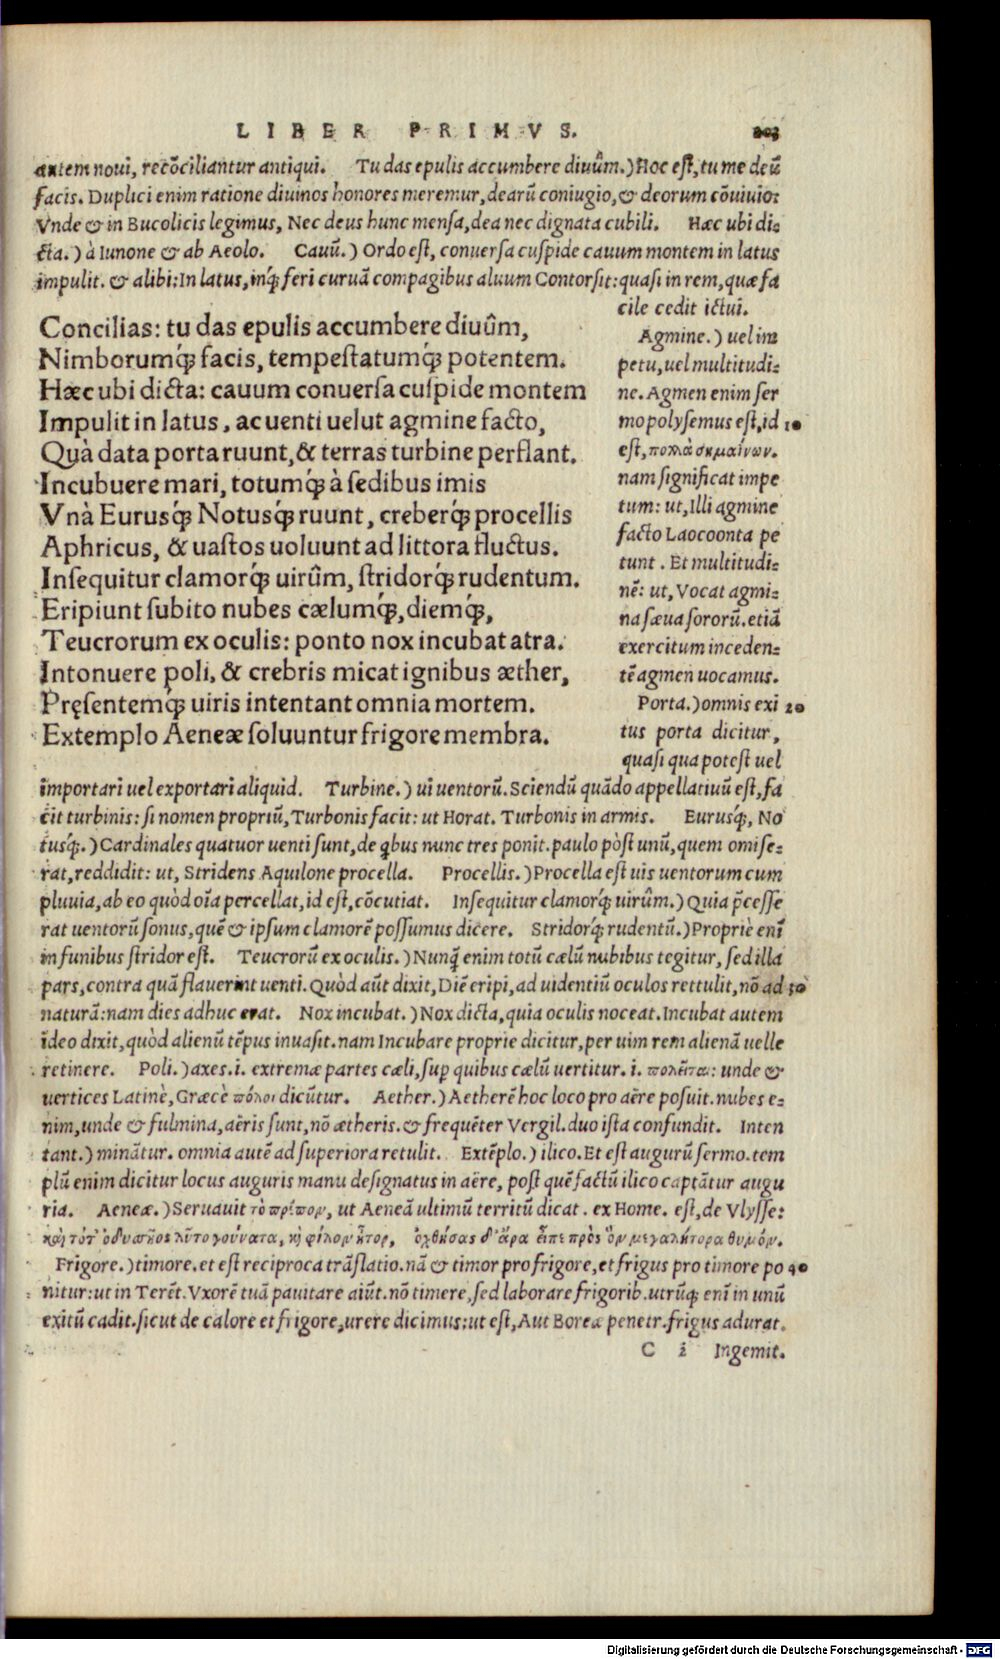 LIBER PRIMVS. 203
autem noui, recõciliantur antiqui. Tu das epulis accumbere diuûm.) Hoc est, tu me deũ
facis. Duplici enim ratione diuinos honores meremur, dearũ coniugio, & deorum cõuiuio:
Vnde & in Bucolicis legimus, Nec deus hunc mensa, dea nec dignata cubili. Hæc ubi di-
cta.) à Iunone & ab Aeolo. Cauũ.) Ordo est, conuersa cuspide cauum montem in latus
impulit. & alibi: In latus, inq́; feri curuã compagibus aluum Contorsit: quasi in rem, quæ fa
cile cedit ictui.
Concilias: tu das epulis accumbere diuûm,
Nimborumq́; facis, tempestatumq́; potentem.
Hæc ubi dicta: cauum conuersa cuspide montem
Impulit in latus, ac uenti uelut agmine facto,
Quà data porta ruunt, & terras turbine perflant.
Incubuere mari, totumq́; à sedibus imis
Vnà Eurusq́; Notusq́; ruunt, creberq́; procellis
Aphricus, & uastos uoluunt ad littora fluctus.
Insequitur clamorq́; uirûm, stridorq́; rudentum.
Eripiunt subito nubes cælumq́;, diemq́;,
Teucrorum ex oculis: ponto nox incubat atra.
Intonuere poli, & crebris micat ignibus æther,
Pręsentemq́; uiris intentant omnia mortem.
Extemplo Aeneæ soluuntur frigore membra.
Agmine.) uel im
petu, uel multitudi-
ne. Agmen enim ser
mo polysemus est, id 10
est, πολλὰ σημαίνων.
nam significat impe
tum: ut, Illi agmine
facto Laocoonta pe
tunt. Et multitudi-
nẽ: ut, Vocat agmi-
na sæua sororũ. etiã
exercitum inceden-
tẽ agmen uocamus.
Porta.) omnis exi 20
tus porta dicitur,
quasi qua potest uel
importari uel exportari aliquid. Turbine.) ui uentorũ. Sciendũ quãdo appellatiuũ est, fa
cit turbinis: si nomen propriũ, Turbonis facit: ut Horat. Turbonis in armis. Eurusq́;, No
tusq́;.) Cardinales quatuor uenti sunt, de qbus nunc tres ponit. paulo pòst unũ, quem omise-
rat, reddidit: ut, Stridens Aquilone procella. Procellis.) Procella est uis uentorum cum
pluuia, ab eo quòd oĩa percellat, id est, cõcutiat. Insequitur clamorq́; uirûm.) Quia p̃cesse
rat uentorũ sonus, quẽ & ipsum clamorẽ possumus dicere. Stridorq́; rudentũ.) Propriè enĩ
in funibus stridor est. Teucrorũ ex oculis.) Nunq̃ enim totũ cælũ nubibus tegitur, sed illa
pars, contra quã flauerint uenti. Quòd aũt dixit, Diẽ eripi, ad uidentiũ oculos rettulit, nõ ad 30
naturã: nam dies adhuc erat. Nox incubat.) Nox dicta, quia oculis noceat. Incubat autem
ideo dixit, quòd alienũ tẽpus inuasit. nam Incubare proprie dicitur, per uim rem alienã uelle
retinere. Poli.) axes .i. extremæ partes cæli, sup quibus cælũ uertitur .i. πολεῖται: unde &
uertices Latinè, Græcè πόλοι dicũtur. Aether.) Aetherẽ hoc loco pro aëre posuit. nubes e-
nim, unde & fulmina, aëris sunt, nõ ætheris. & frequẽter Vergil. duo ista confundit. Inten
tant.) minãtur. omnia autẽ ad superiora retulit. Extẽplo.) ilico. Et est augurũ sermo. tem
plũ enim dicitur locus auguris manu designatus in aëre, post quẽ factũ ilico captãtur augu
ria. Aeneæ.) Seruauit τὸ πρέπον, ut Aeneã ultimũ territũ dicat. ex Home. est, de Vlysse:
καὶ τότ' ὀδυσσῆος λύτο γούνατα, κỳ φίλον ἦτορ, ὀχθήσας δ' ἄρα εἶπε πρὸς ὃν μεγαλήτορα θυμόν.
Frigore.) timore. et est reciproca trãslatio. nã & timor pro frigore, et frigus pro timore po 40
nitur: ut in Terẽt. Vxorẽ tuã pauitare aiũt. nõ timere, sed laborare frigorib. utrũq; enĩ in unũ
exitũ cadit. sicut de calore et frigore, urere dicimus: ut est, Aut Boreæ penetr. frigus adurat.
C i Ingemit.
Digitalisierung gefördert durch die Deutsche Forschungsgemeinschaft - DFG